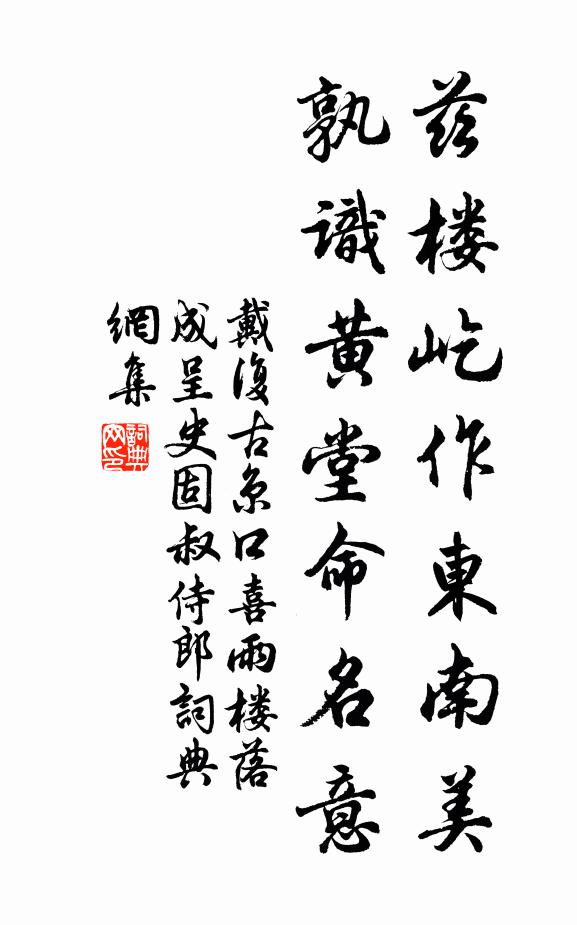 茲楼屹作東南美
孰識黄堂命名意
戴復古京口喜雨楼落
成呈史固叔侍郎詞典
網集
詞典网印